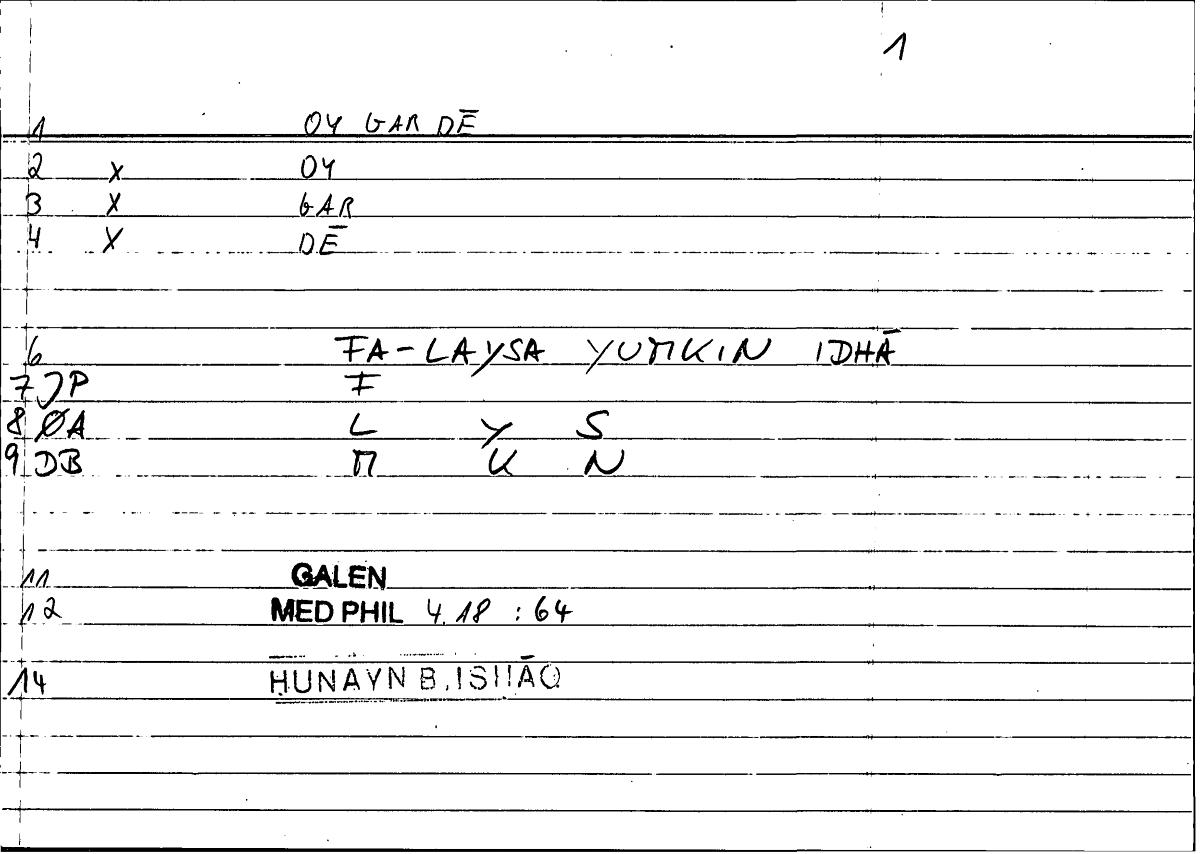 1
1 OY GAR DĒ
2 X OY
3 X GAR
4 X DĒ
6 FA-LAYSA YUMKIN IDHĀ
7 JP F
8 ØA L Y S
9 DB M K N
11 GALEN
12 MED PHIL 4.18 : 64
14 ḤUNAYN B. ISḤĀQ